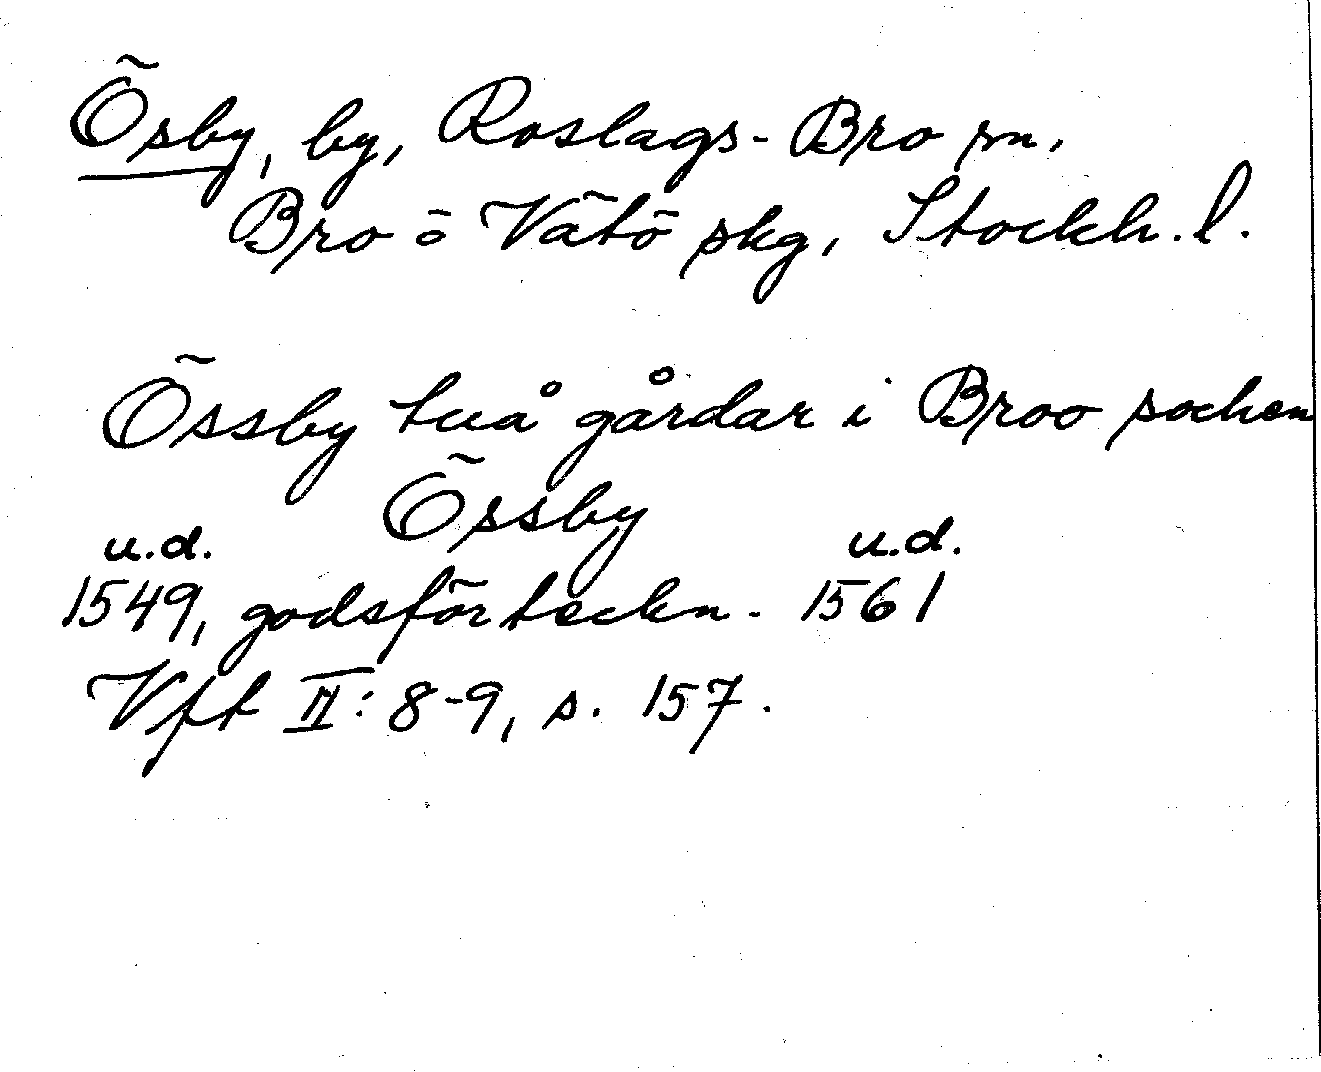 Ösby, by, Roslags-Bro sn,
Bro o Vätö skg, Stockh. l.
Össby tuå gårdar i Broo sochen
Össby
u.d. u.d.
1549, godsförteckn. 1561
Vft II: 8-9, s. 157.